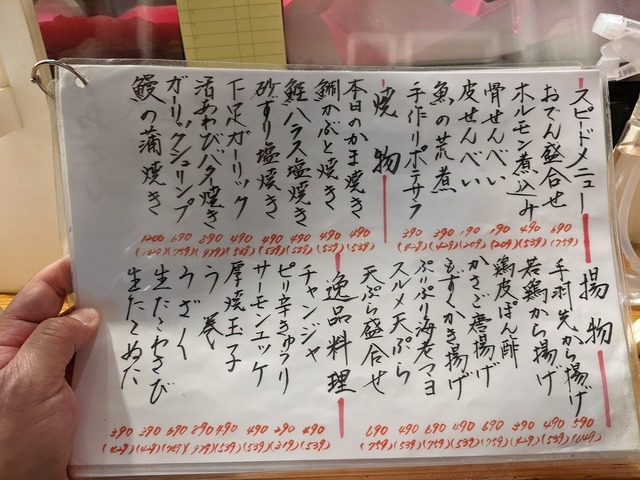 スピードメニュー
おでん盛合せ 690 (759)
ホルモン煮込み 490 (539)
骨せんべい 190 (209)
皮せんべい 190 (209)
魚の荒煮 390 (429)
手作りポテサラ 390 (429)
焼物
本日のかま焼き 490 (539)
鯛かぶと焼き 490 (539)
鮭ハラス塩焼き 490 (539)
砂ずり塩焼き 490 (539)
下足ガーリック 490 (539)
活あわびバター焼き 890 (979)
ガーリックシュリンプ 690 (759)
鰻の蒲焼き 1200
揚物
手羽先から揚げ 590 (649)
若鶏から揚げ 490 (539)
鶏皮ぽん酢 390 (429)
かさご唐揚げ 690 (759)
もずくかき揚げ 490 (539)
ぷりぷり海老マヨ 690 (759)
スルメ天ぷら 490 (539)
天ぷら盛合せ 690 (759)
逸品料理
チャンジャ 490 (539)
ピリ辛きゅうり 290 (319)
サーモンユッケ 490 (539)
厚焼玉子 490 (539)
う巻 890 (979)
うざく 690 (759)
生たこわさび 390 (429)
生たこぬた 390 (429)